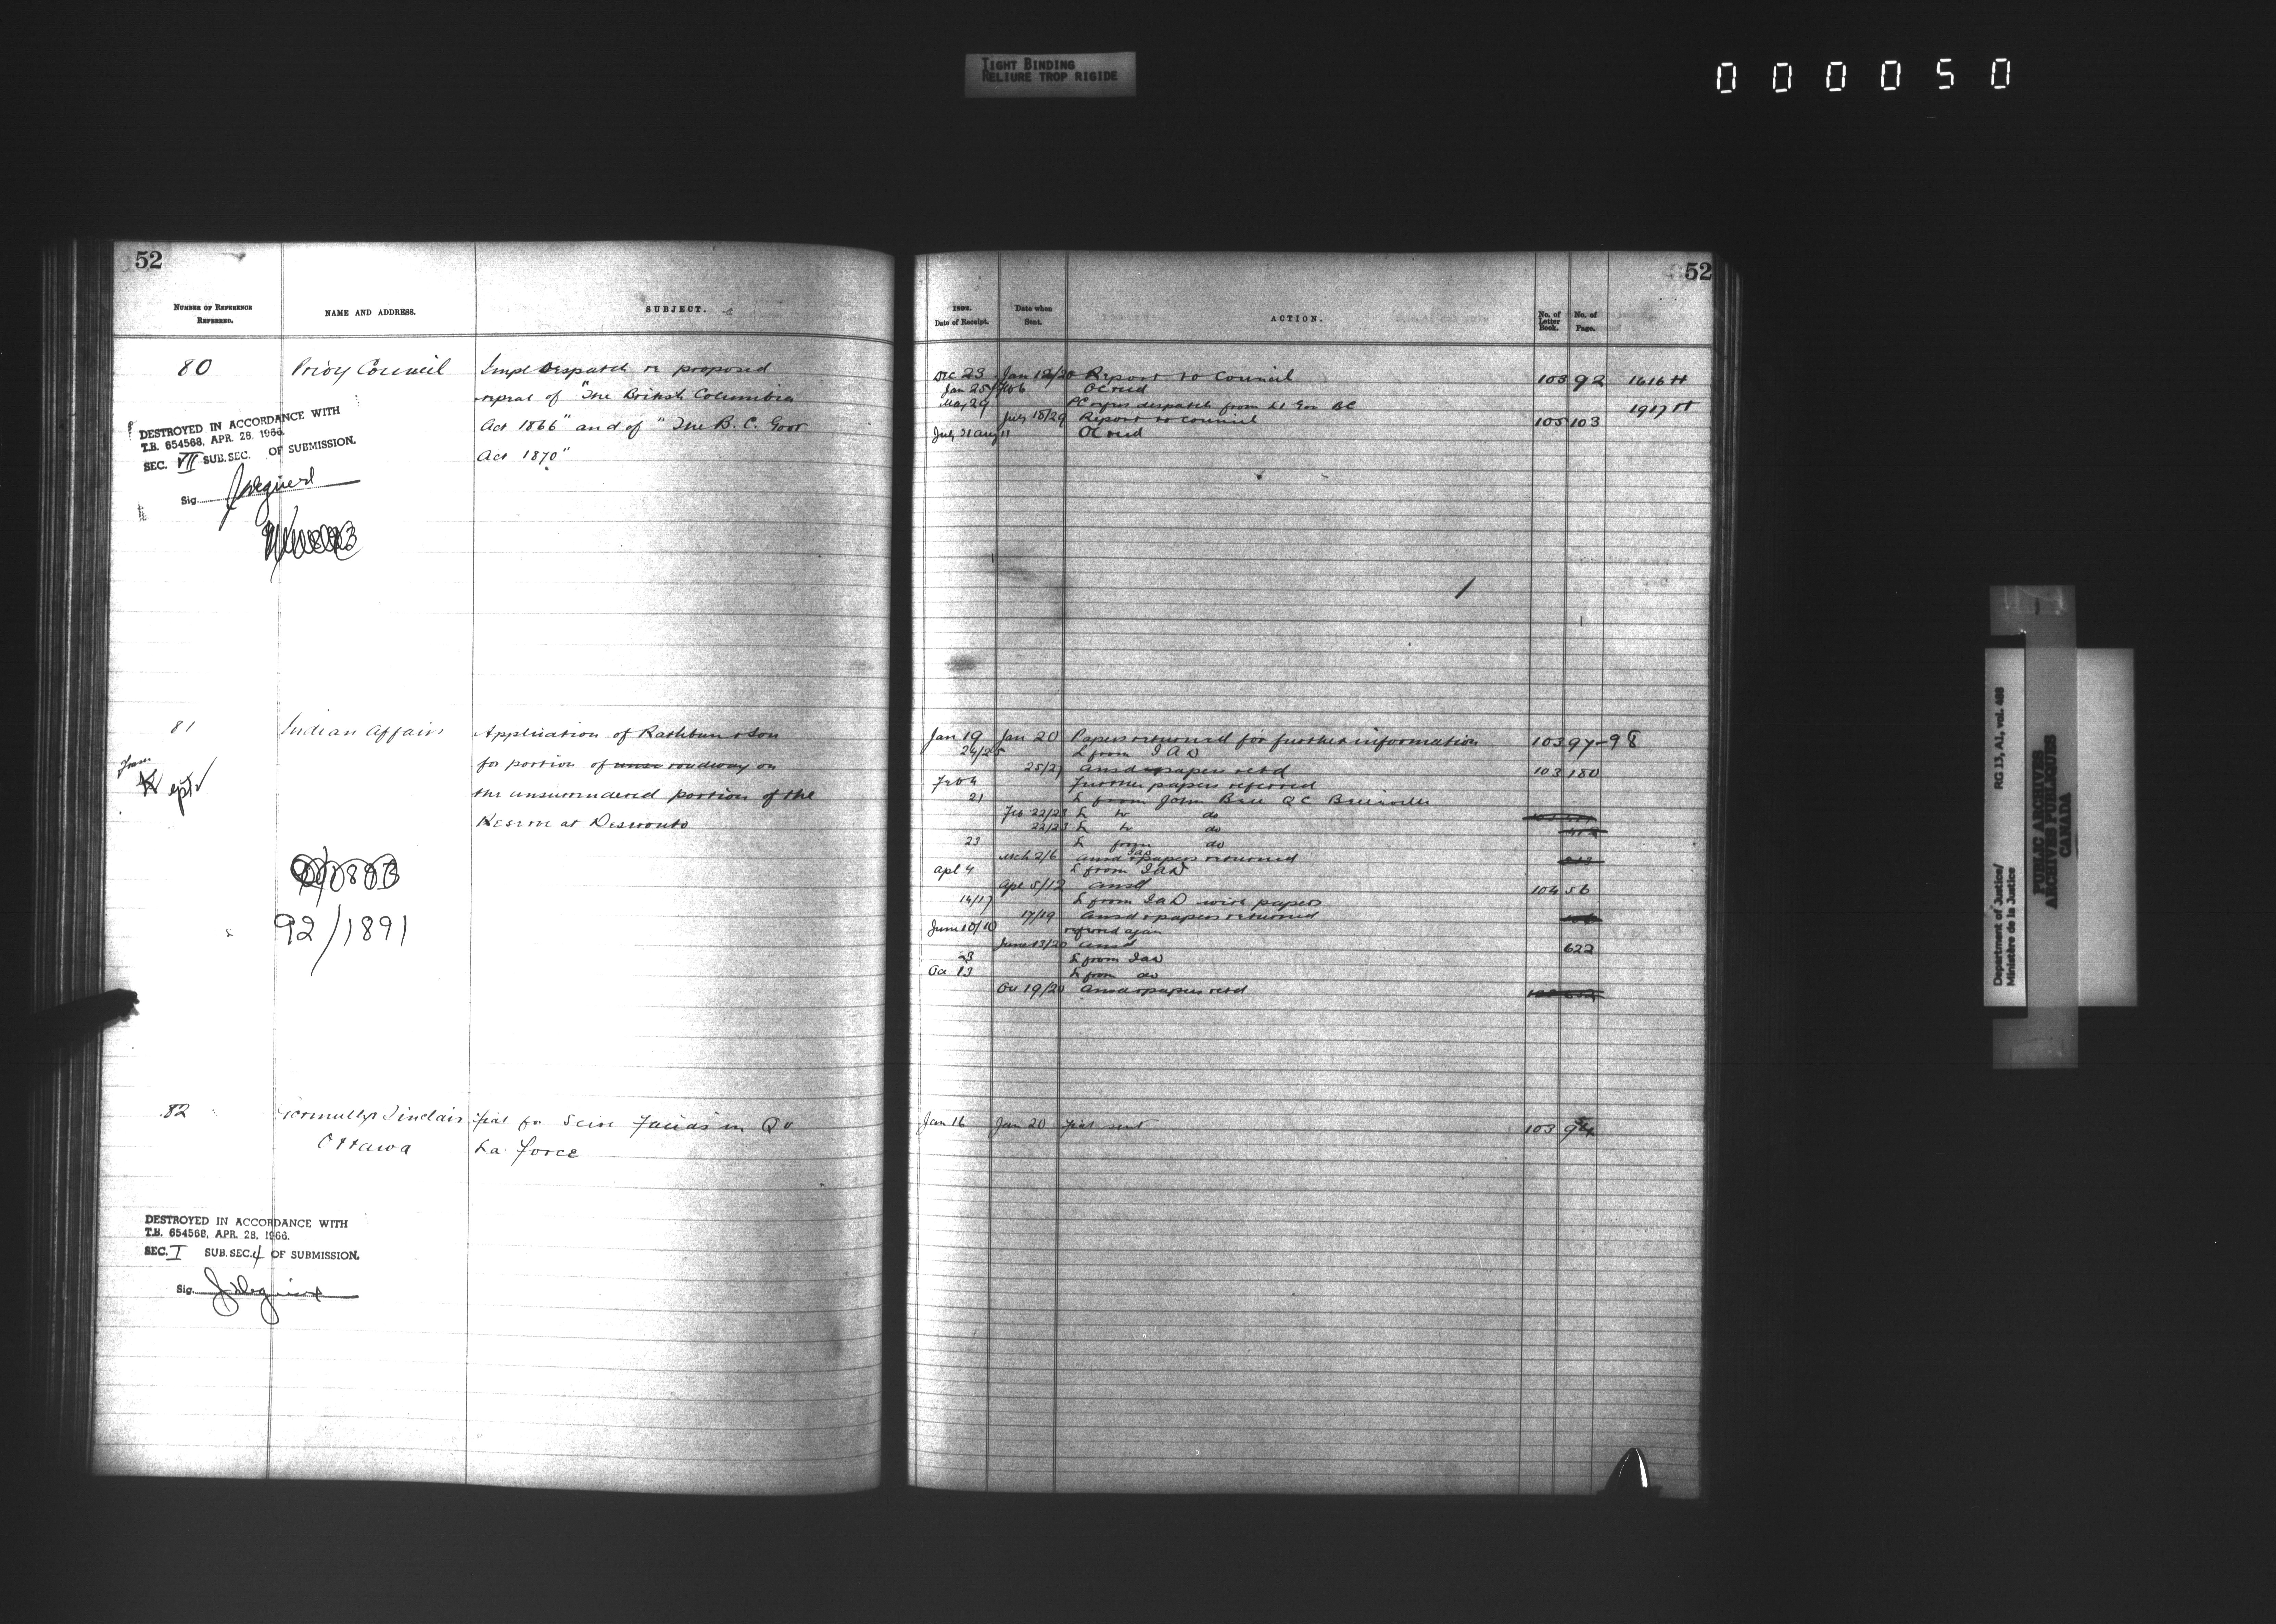 TIGHT BINDING
RELIURE TROP RIGIDE
000050
52
NUMBER OF REFERENCE REFERRED.
NAME AND ADDRESS.
SUBJECT.
80
Privy Council
Impl Despatch re proposed
repeal of "The British Columbia
Act 1866" and of "The B. C. Govt
Act 1870"
DESTROYED IN ACCORDANCE WITH
T.B. 654568, APR. 28, 1966.
SEC. VII SUB.SEC. OF SUBMISSION.
Sig.
81
Indian Affairs
Application of Rathbun & Son
for portion of roadway on
the unsurrendered portion of the
Reserve at Deseronto
92/1891
82
Sinclair
Ottawa
fiat for Scire Facias in Q v
La Force
DESTROYED IN ACCORDANCE WITH
T.B. 654568, APR. 28, 1966.
SEC. I SUB.SEC. 4 OF SUBMISSION.
Sig.
52
1892.
Date of Receipt.
Date when Sent.
ACTION.
No. of Letter Book.
No. of Page.
Dec 23 Jan 12/20 Report to Council 103 92 1616 H
Jan 25 Feb 6 OC recd
May 29 PC despatch from Lt Gov BC 1917 H
July 18/29 Report to Council 105 103
July 31 Aug 11 OC recd
Jan 19 Jan 20 Papers returned for further information 103 97-98
24/25 L from I A D
25/27 Ansd & papers retd 103 180
Feb 4 Further papers referred
21 L from John Bell QC Belleville
Feb 22/23 L to do
22/23 L to do
23 L from do
Mch 2/6 Ansd IAD & papers returned
Apl 4 L from IAD
Apl 5/12 Ansd 104 56
14/17 L from IAD with papers
17/19 Ansd & papers returned
June 10/10 referred again
June 13/20 Ansd 622
23 L from IAD
Oct 13 L from do
Oct 19/20 Ansd & papers retd
Jan 16 Jan 20 fiat sent 103
Department of Justice/
Ministère de la Justice
RG 13, A1, vol. 468
PUBLIC ARCHIVES
ARCHIVES PUBLIQUES
CANADA